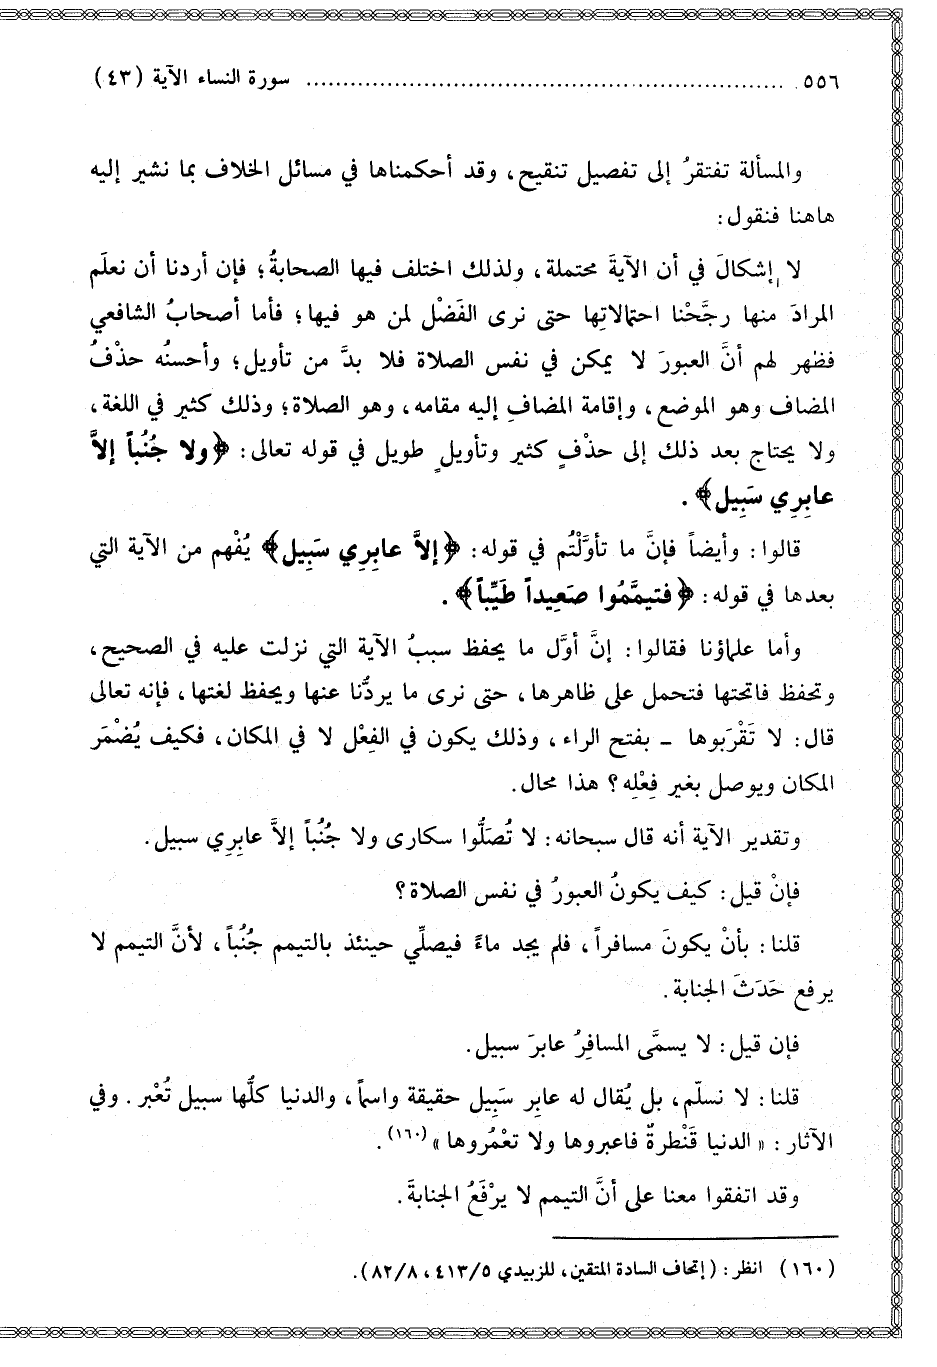 ٥٥٦ ................................................................ سورة النساء الآية (٤٣)
والمسألة تفتقرُ إلى تفصيل تنقيح، وقد أحكمناها في مسائل الخلاف بما نشير إليه
هاهنا فنقول:
لا إشكالَ في أن الآيةَ محتملة، ولذلك اختلف فيها الصحابةُ؛ فإن أردنا أن نعلَم
المرادَ منها رجَّحْنا احتمالاتِها حتى نرى الفَضْل لمن هو فيها؛ فأما أصحابُ الشافعي
فظهر لهم أنَّ العبورَ لا يمكن في نفس الصلاة فلا بدَّ من تأويل؛ وأحسنُه حذْفُ
المضاف وهو الموضع، وإقامة المضافِ إليه مقامه، وهو الصلاة؛ وذلك كثير في اللغة،
ولا يحتاج بعد ذلك إلى حذْفٍ كثير وتأويلٍ طويل في قوله تعالى: ﴿ولا جُنُباً إلاَّ
عابِرِي سَبِيل﴾.
قالوا: وأيضاً فإنَّ ما تأوَّلْتُم في قوله: ﴿إلاَّ عابِرِي سَبِيل﴾ يُفْهم من الآية التي
بعدها في قوله: ﴿فتيمَّمُوا صَعِيداً طَيِّباً﴾.
وأما علماؤنا فقالوا: إنَّ أوَّل ما يحفظ سببُ الآية التي نزلت عليه في الصحيح،
وتحفظ فاتحتها فتحمل على ظاهرها، حتى نرى ما يردُّنا عنها ويحفظ لغتها، فإنه تعالى
قال: لا تَقْرَبوها - بفتح الراء، وذلك يكون في الفِعْل لا في المكان، فكيف يُضْمَر
المكان ويوصل بغير فِعْلِه؟ هذا محال.
وتقدير الآية أنه قال سبحانه: لا تُصَلُّوا سكارى ولا جُنُباً إلاَّ عابِرِي سبيل.
فإنْ قيل: كيف يكونُ العبورُ في نفس الصلاة؟
قلنا: بأنْ يكونَ مسافراً، فلم يجد ماءً فيصلِّي حينئذ بالتيمم جُنُباً، لأنَّ التيمم لا
يرفع حَدَثَ الجنابة.
فإن قيل: لا يسمَّى المسافِرُ عابرَ سبيل.
قلنا: لا نسلّم، بل يُقال له عابِر سَبِيل حقيقة واسماً، والدنيا كلُّها سبيل تُعْبر. وفي
الآثار: «الدنيا قَنْطرةٌ فاعبروها ولا تعْمُروها»(١٦٠).
وقد اتفقوا معنا على أنَّ التيمم لا يرْفَعُ الجنابةَ.
(١٦٠) انظر: (إتحاف السادة المتقين، للزبيدي ٤١٣/٥، ٨٢/٨).